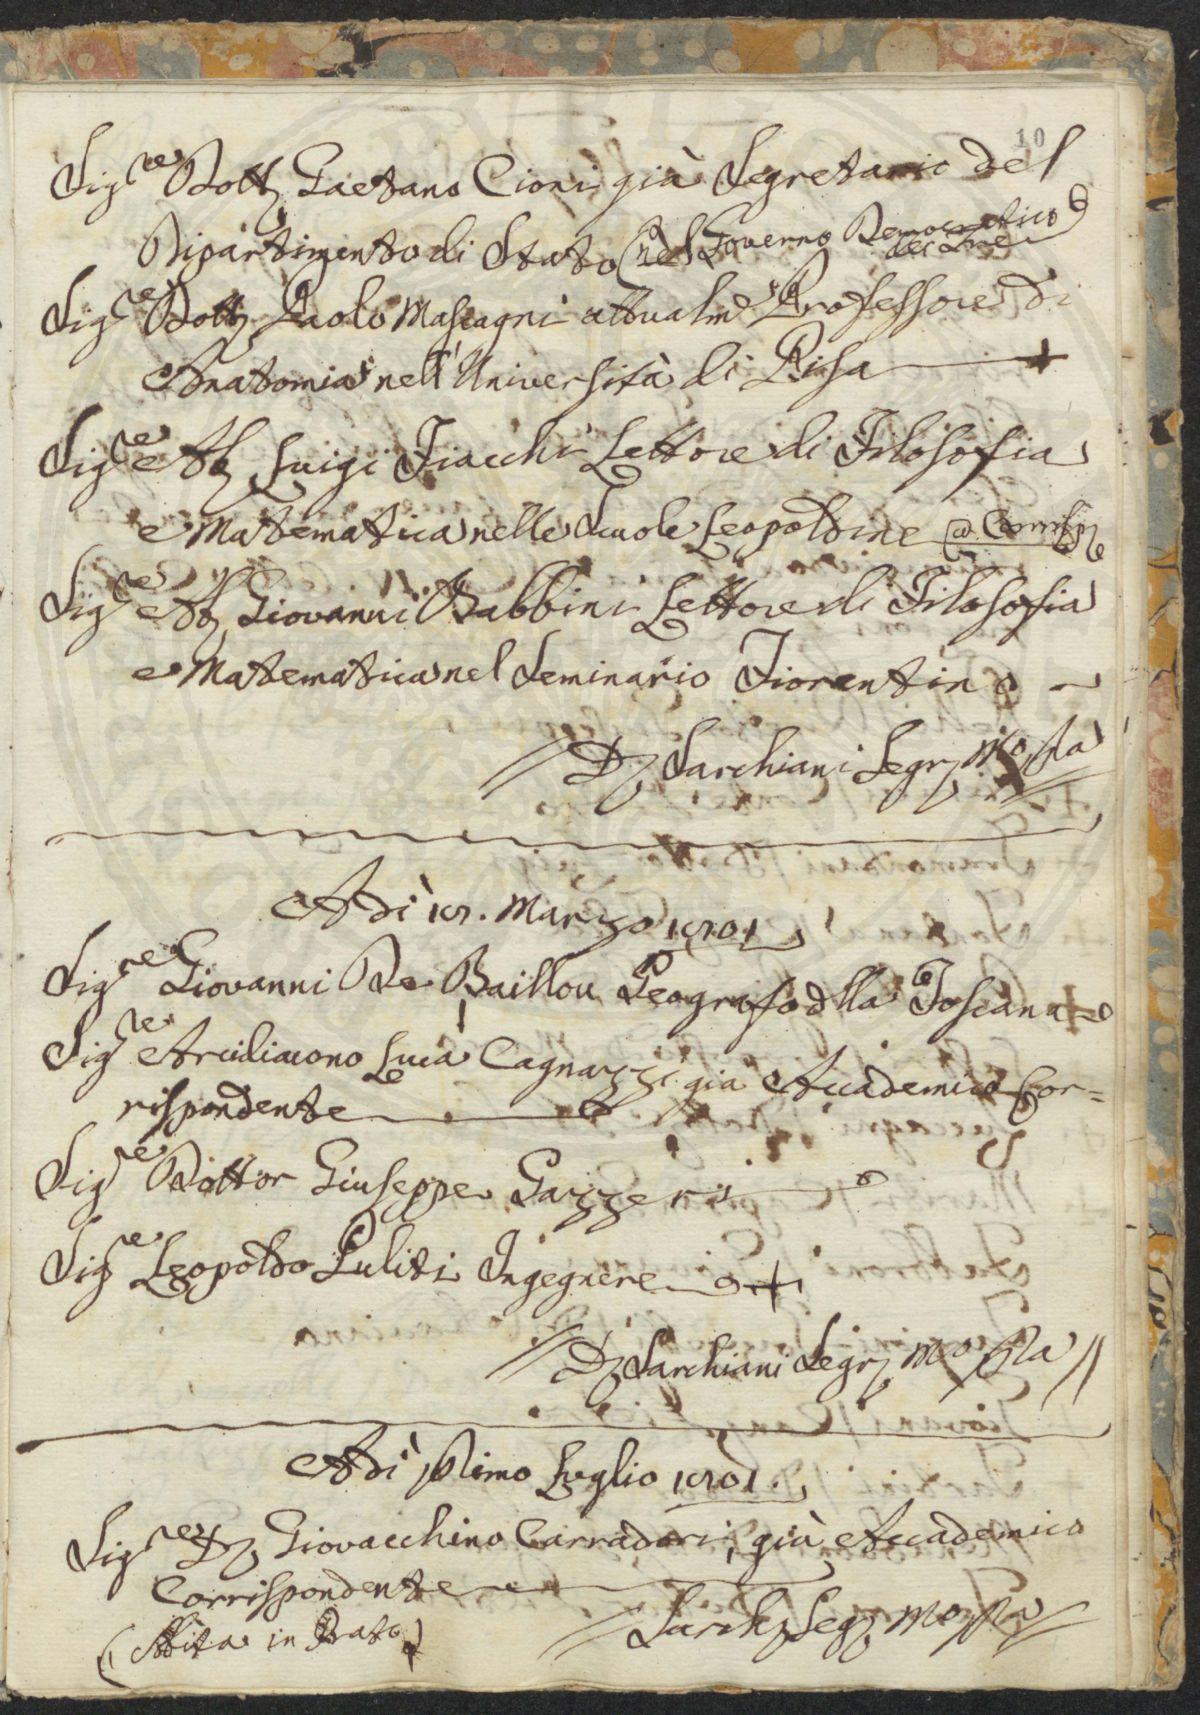 10
Sig.re Dott. Gaetano Cioni già Segretario del
Dipartimento di Stato (nel Governo Democratico)
Sig.re Dott. Paolo Mascagni attualm.e Professore di
Anatomia nell'Università di Pisa +
Sig.re Ab. Luigi Fiacchi Lettore di Filosofia
e Matematica nelle Scuole Leopoldine
Sig.re Ab. Giovanni Babbini Lettore di Filosofia
e Matematica nel Seminario Fiorentino
D. Sarchiani Segr. m.o p.a
Adì Marzo 1801
Sig.re Giovanni De Baillou Geografo dlla Toscana +
Sig.re Arcidiacono Luca Cagnazzi già Accademico Cor=
rispondente
Sig.re Dottor Giuseppe Gazzeri
Sig.re Leopoldo Puliti Ingegnere +
D. Sarchiani Segr. m.o p.a
Adì Primo Luglio 1801.
Sig.re D. Giovacchino Carradori, già Accademico
Corrispondente
(Abita in Prato)
Sarch. Seg. m.o p.a